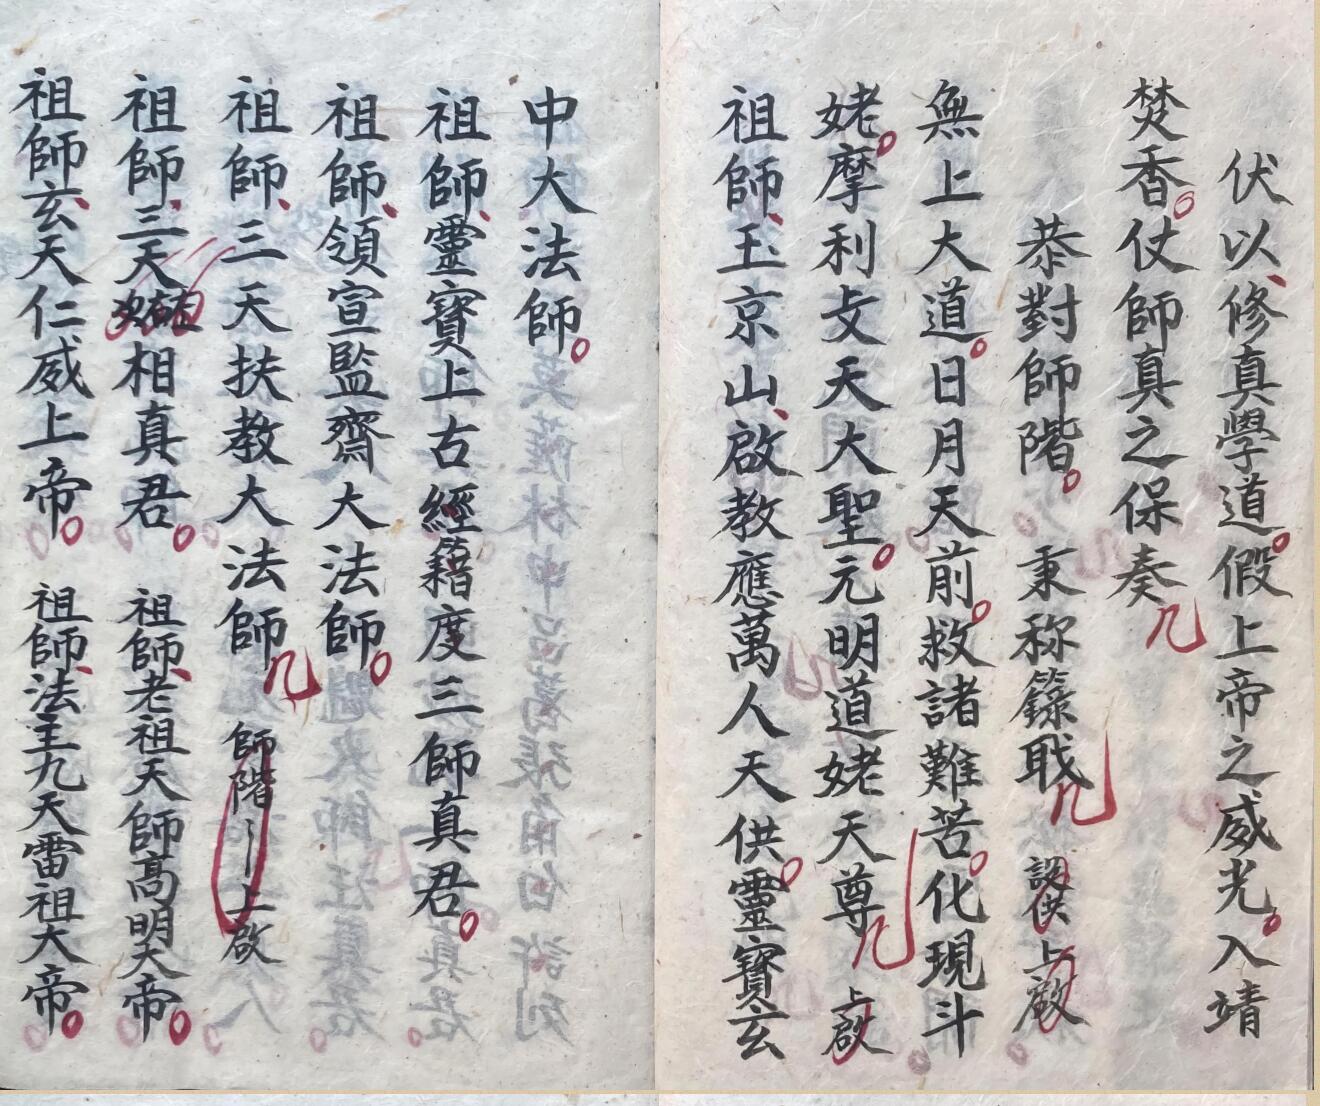 伏以修真學道。假上帝之威光。入靖
焚香。仗師真之保奏
恭對師階。秉称籙戝 設供上啟
無上大道。日月天前。救諸難苦。化現斗
姥。摩利攴天大聖。元明道姥天尊 上啟
祖師、玉京山、啟教應萬人天供。靈寶玄
中大法師。
祖師、靈寶上古經籍度三師真君。
祖師、領宣監齋大法師。
祖師、三天扶教大法師 師階 上啟
祖師、三天 相真君。 祖師、老祖天師高明大帝。
祖師、玄天仁威上帝。 祖師、法主九天雷祖大帝。